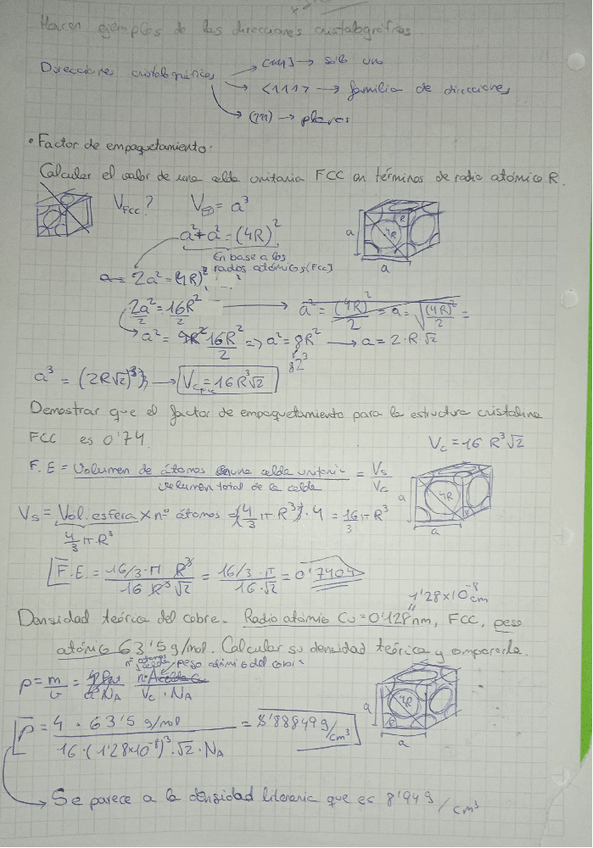 Hacer ejemplos de las direcciones cristalográficas.
Direcciones cristalográficas → [111] → solo uno
→ <111> → familia de direcciones
→ (111) → planos
• Factor de empaquetamiento:
Calcular el valor de una celda unitaria FCC en términos de radio atómico R.
V_FCC? V = a³
a² + a² = (4R)²
En base a los
radios atómicos (FCC)
2a² = (4R)²
2a²/2 = 16R²/2 → a² = (4R)²/2 = a = √((4R)²/2) =
a² = 16R²/2 => a² = 8R² → a = 2·R√2
82³
a³ = (2R√2)³ → V_C = 16R³√2
Demostrar que el factor de empaquetamiento para la estructura cristalina
FCC es 0'74.
V_C = 16 R³√2
F.E = Volumen de átomos en una celda unitaria / volumen total de la celda = V_S / V_C
V_S = Vol. esfera × nº átomos = (4/3 π R³)·4 = 16/3 π R³
4/3 π R³
F.E. = 16/3·π R³ / 16 R³√2 = 16/3·π / 16·√2 = 0'7404
1'28×10⁻⁸ cm
Densidad teórica del cobre. Radio atómico Cu = 0'128 nm, FCC, peso
atómico 63'5 g/mol. Calcular su densidad teórica y compararla.
nº átomos / peso atómico del cobre
ρ = m/V = n·A / V_C · N_A
ρ = 4 · 63'5 g/mol / 16·(1'28×10⁻⁸)³·√2·N_A = 8'88849 g/cm³
Se parece a la densidad literaria que es 8'94 g/cm³
a
R
4R
a
a
4R
a
a
4R
R
a